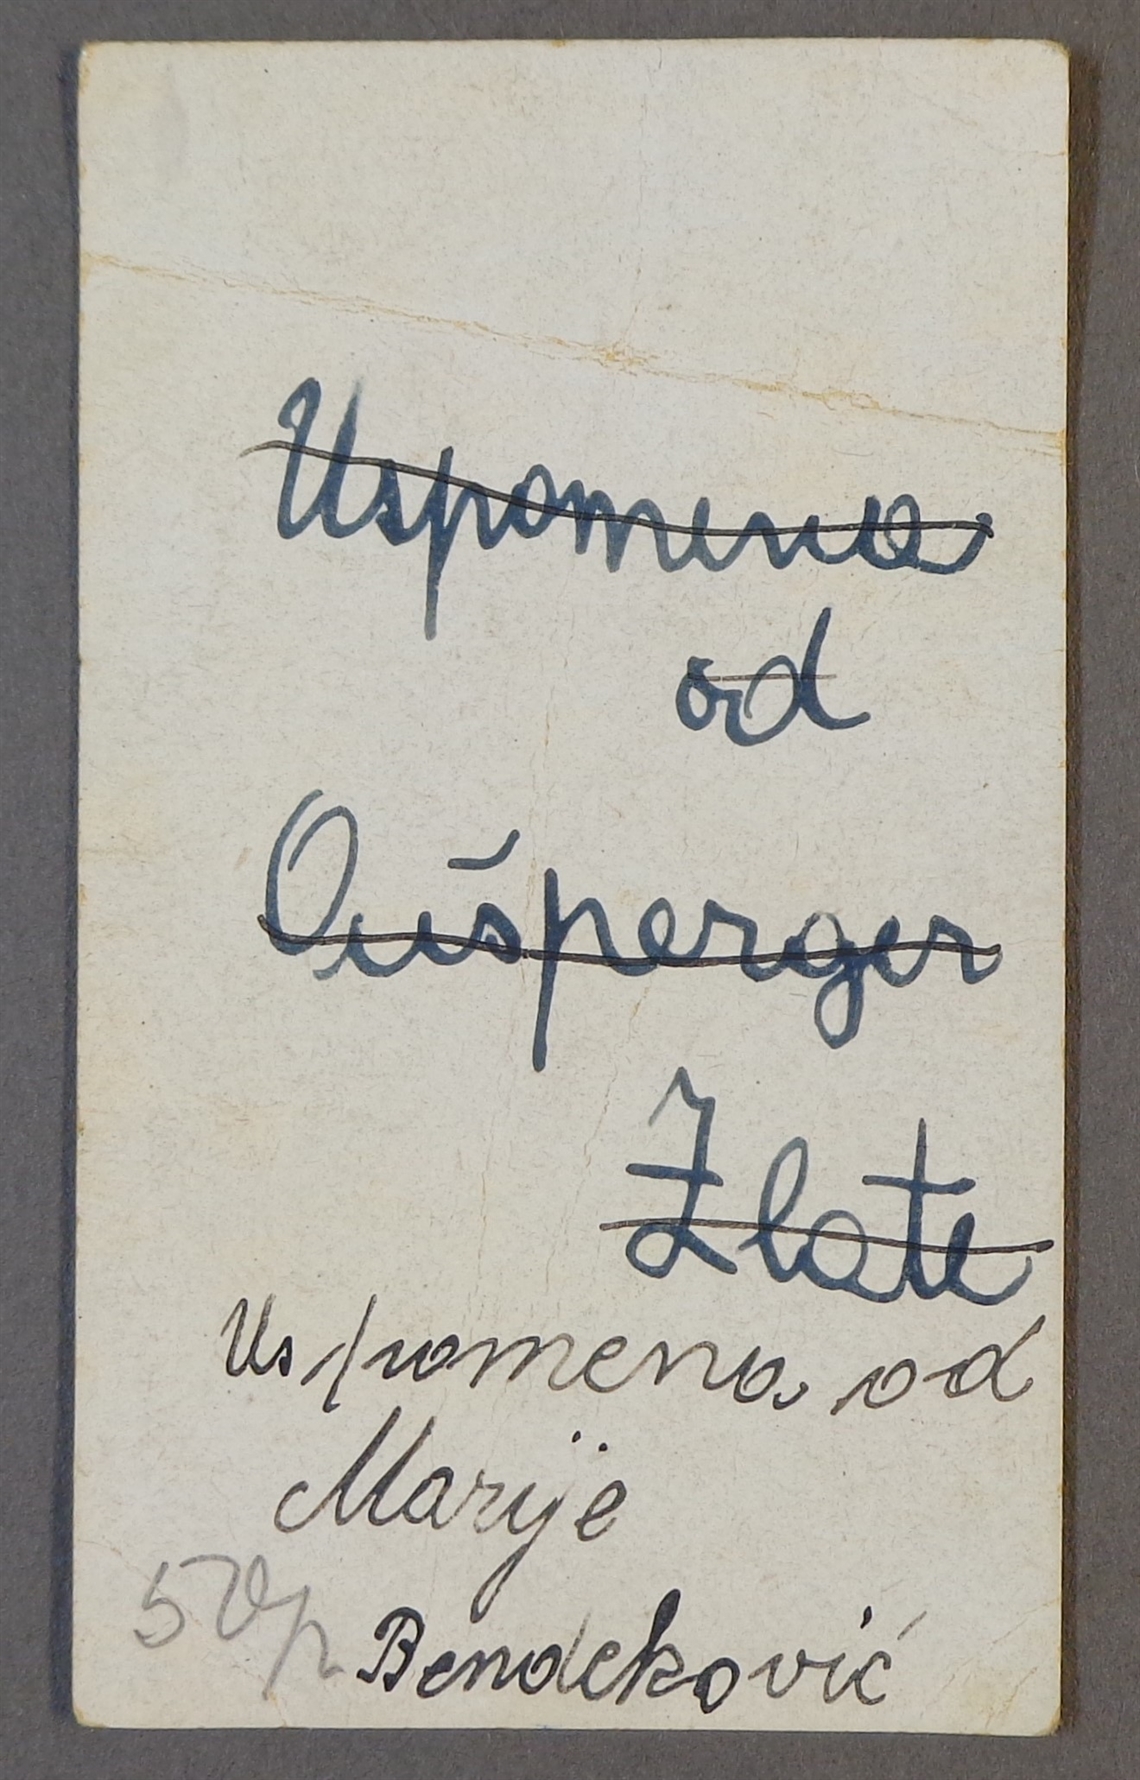 Uspomena
od
Oušperger
Zlate
Uspomena od
Marije
Bendeković